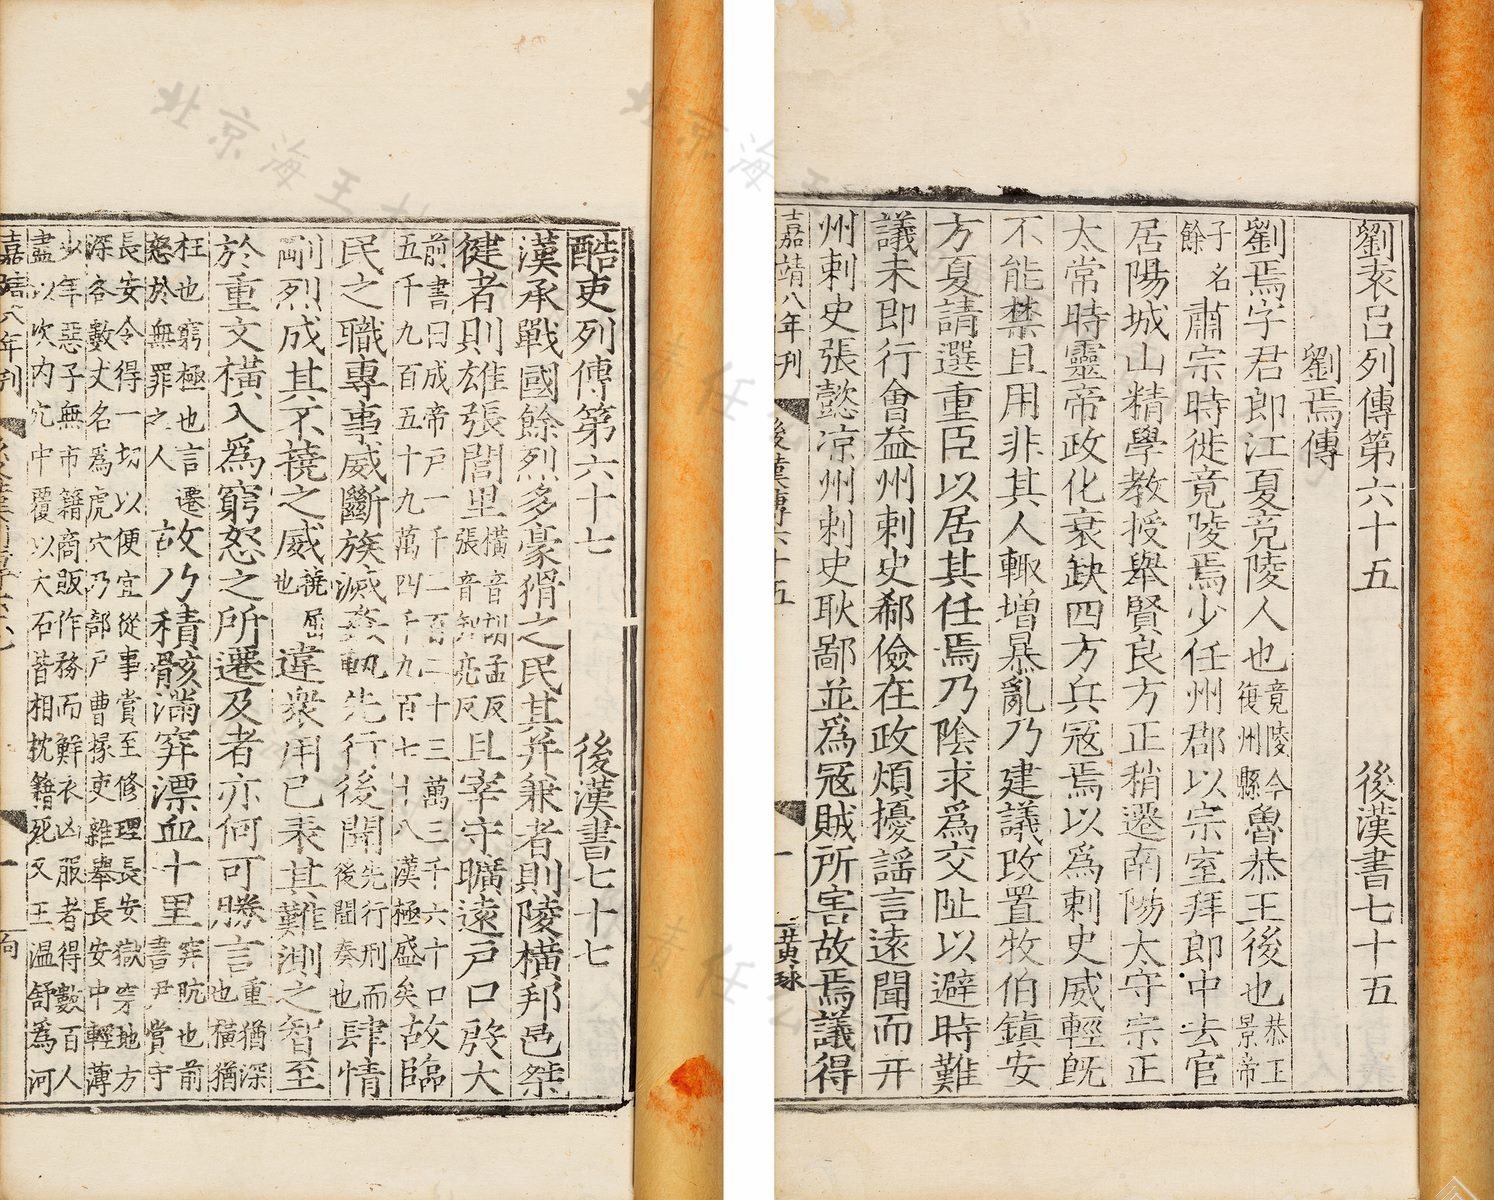 劉表呂列傳第六十五 後漢書七十五
劉焉傳
劉焉字君郎江夏竟陵人也竟陵今復州縣魯恭王後也恭王景帝
子名餘肅宗時徙竟陵焉少任州郡以宗室拜郎中去官
居陽城山精學教授舉賢良方正稍遷南陽太守宗正
太常時靈帝政化衰缺四方兵寇焉以為刺史威輕既
不能禁且用非其人輙增暴亂乃建議改置牧伯鎮安
方夏請選重臣以居其任焉乃陰求爲交阯以避時難
議未即行會益州刺史郗儉在政煩擾謠言遠聞而并
州刺史張懿凉州刺史耿鄙並爲寇賊所害故焉議得
嘉靖八年刊 後漢傳六十五 一 黄球
酷吏列傳第六十七 後漢書七十七
漢承戰國餘烈多豪猾之民其并兼者則陵橫邦邑桀
健者則雄張閭里橫音胡孟反張音知亮反且宰守曠遠戶口殷大
前書曰成帝戶一千一百二十三萬三千六十口五千九百五十九萬四千九百七十八漢極盛矣故臨
民之職專事威斷族滅姦軌先行後聞先行刑而後聞奏也肆情
剛烈成其不撓之威撓屈也違衆用己表其難測之智至
於重文橫入爲窮怒之所遷及者亦何可勝言重猶深也橫猶
枉也窮極也言遷怒於無罪之人故乃積骸滿穽漂血十里穽阬也前書尹賞守
長安令得一切以便宜從事賞至修理長安獄穿地方深各數丈名爲虎穴乃部戶曹掾吏雜舉長安中輕薄
少年惡子無市籍商販作務而鮮衣凶服者得數百人盡以次內穴中覆以大石皆相枕籍死又王温舒爲河
嘉靖八年刊 一